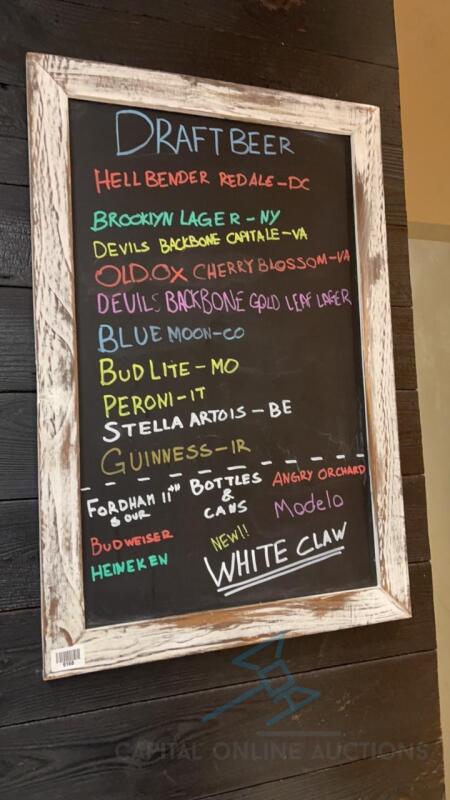 DRAFT BEER
HELLBENDER RED ALE - DC
BROOKLYN LAGER - NY
DEVILS BACKBONE CAPITALE - VA
OLD.OX CHERRY BLOSSOM - VA
DEVILS BACKBONE GOLD LEAF LAGER
BLUE MOON - CO
BUD LITE - MO
PERONI - IT
STELLA ARTOIS - BE
GUINNESS - IR
FORDHAM 11TH
SOUR
BOTTLES
&
CANS
ANGRY ORCHARD
Modelo
BUDWEISER
HEINEKEN
NEW!!
WHITE CLAW
CAPITAL ONLINE AUCTIONS